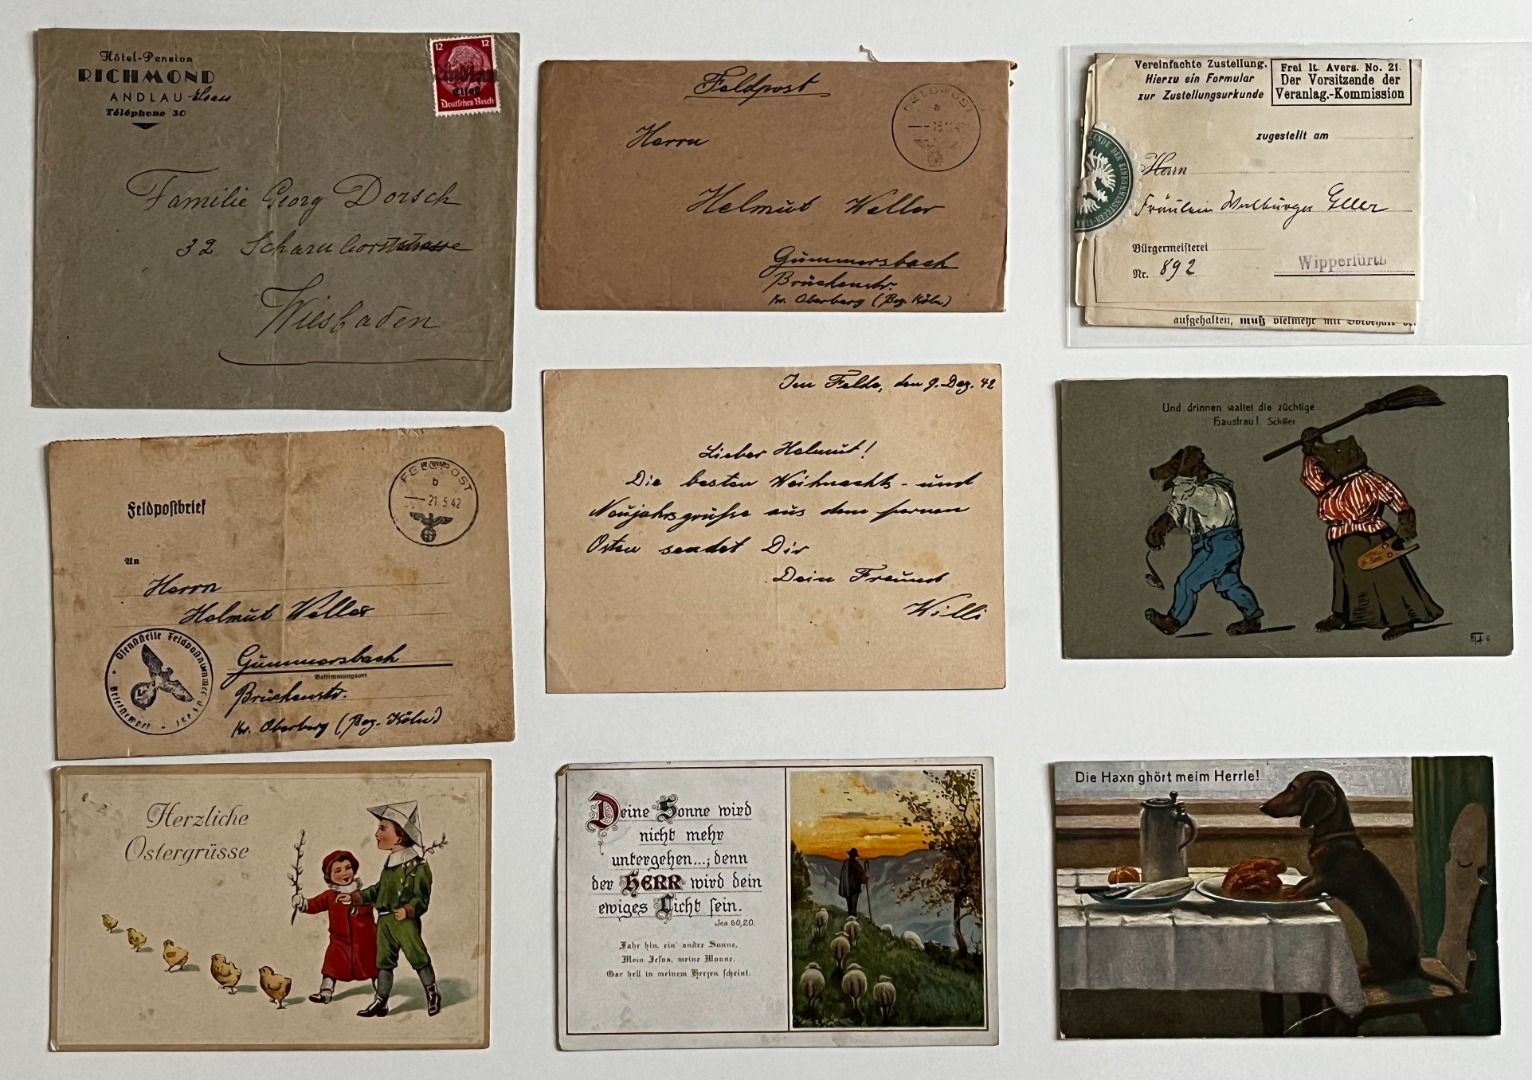 Hôtel-Pension
RICHMOND
ANDLAU Elsass
Téléphone 30
12 12
Elsaß
Deutsches Reich
Familie Georg Dorsch
32 Scharnhorststrasse
Wiesbaden
Feldpost
FELDPOST
a
Herrn
Helmut Weller
Gummersbach
Brückenstr.
Kr. Oberberg (Bez. Köln)
Vereinfachte Zustellung.
Hierzu ein Formular
zur Zustellungsurkunde
Frei lt. Avers. No. 21.
Der Vorsitzende der
Veranlag.-Kommission
zugestellt am
Herrn
Fräulein Walburga Eller
Bürgermeisterei
Nr. 892
Wipperfürth
aufgehalten, muß vielmehr mit
Feldpostbrief
FELDPOST
b
21.5.42
An
Herrn
Helmut Weller
Gummersbach
Bestimmungsort
Brückenstr.
Kr. Oberberg (Bez. Köln)
Dienststelle Feldpostnummer
Im Felde, den 9. Dez. 42
Lieber Helmut!
Die besten Weihnachts- und
Neujahrsgrüße aus dem fernen
Osten sendet Dir
Dein Freund
Willi
Und drinnen waltet die züchtige
Hausfrau! Schiller
Herzliche
Ostergrüsse
Deine Sonne wird
nicht mehr
untergehen...; denn
der HERR wird dein
ewiges Licht sein.
Jes 60,20.
Fahr hin, ein' andre Sonne,
Mein Jesus, meine Wonne,
Gar hell in meinem Herzen scheint.
Die Haxn ghört meim Herrle!